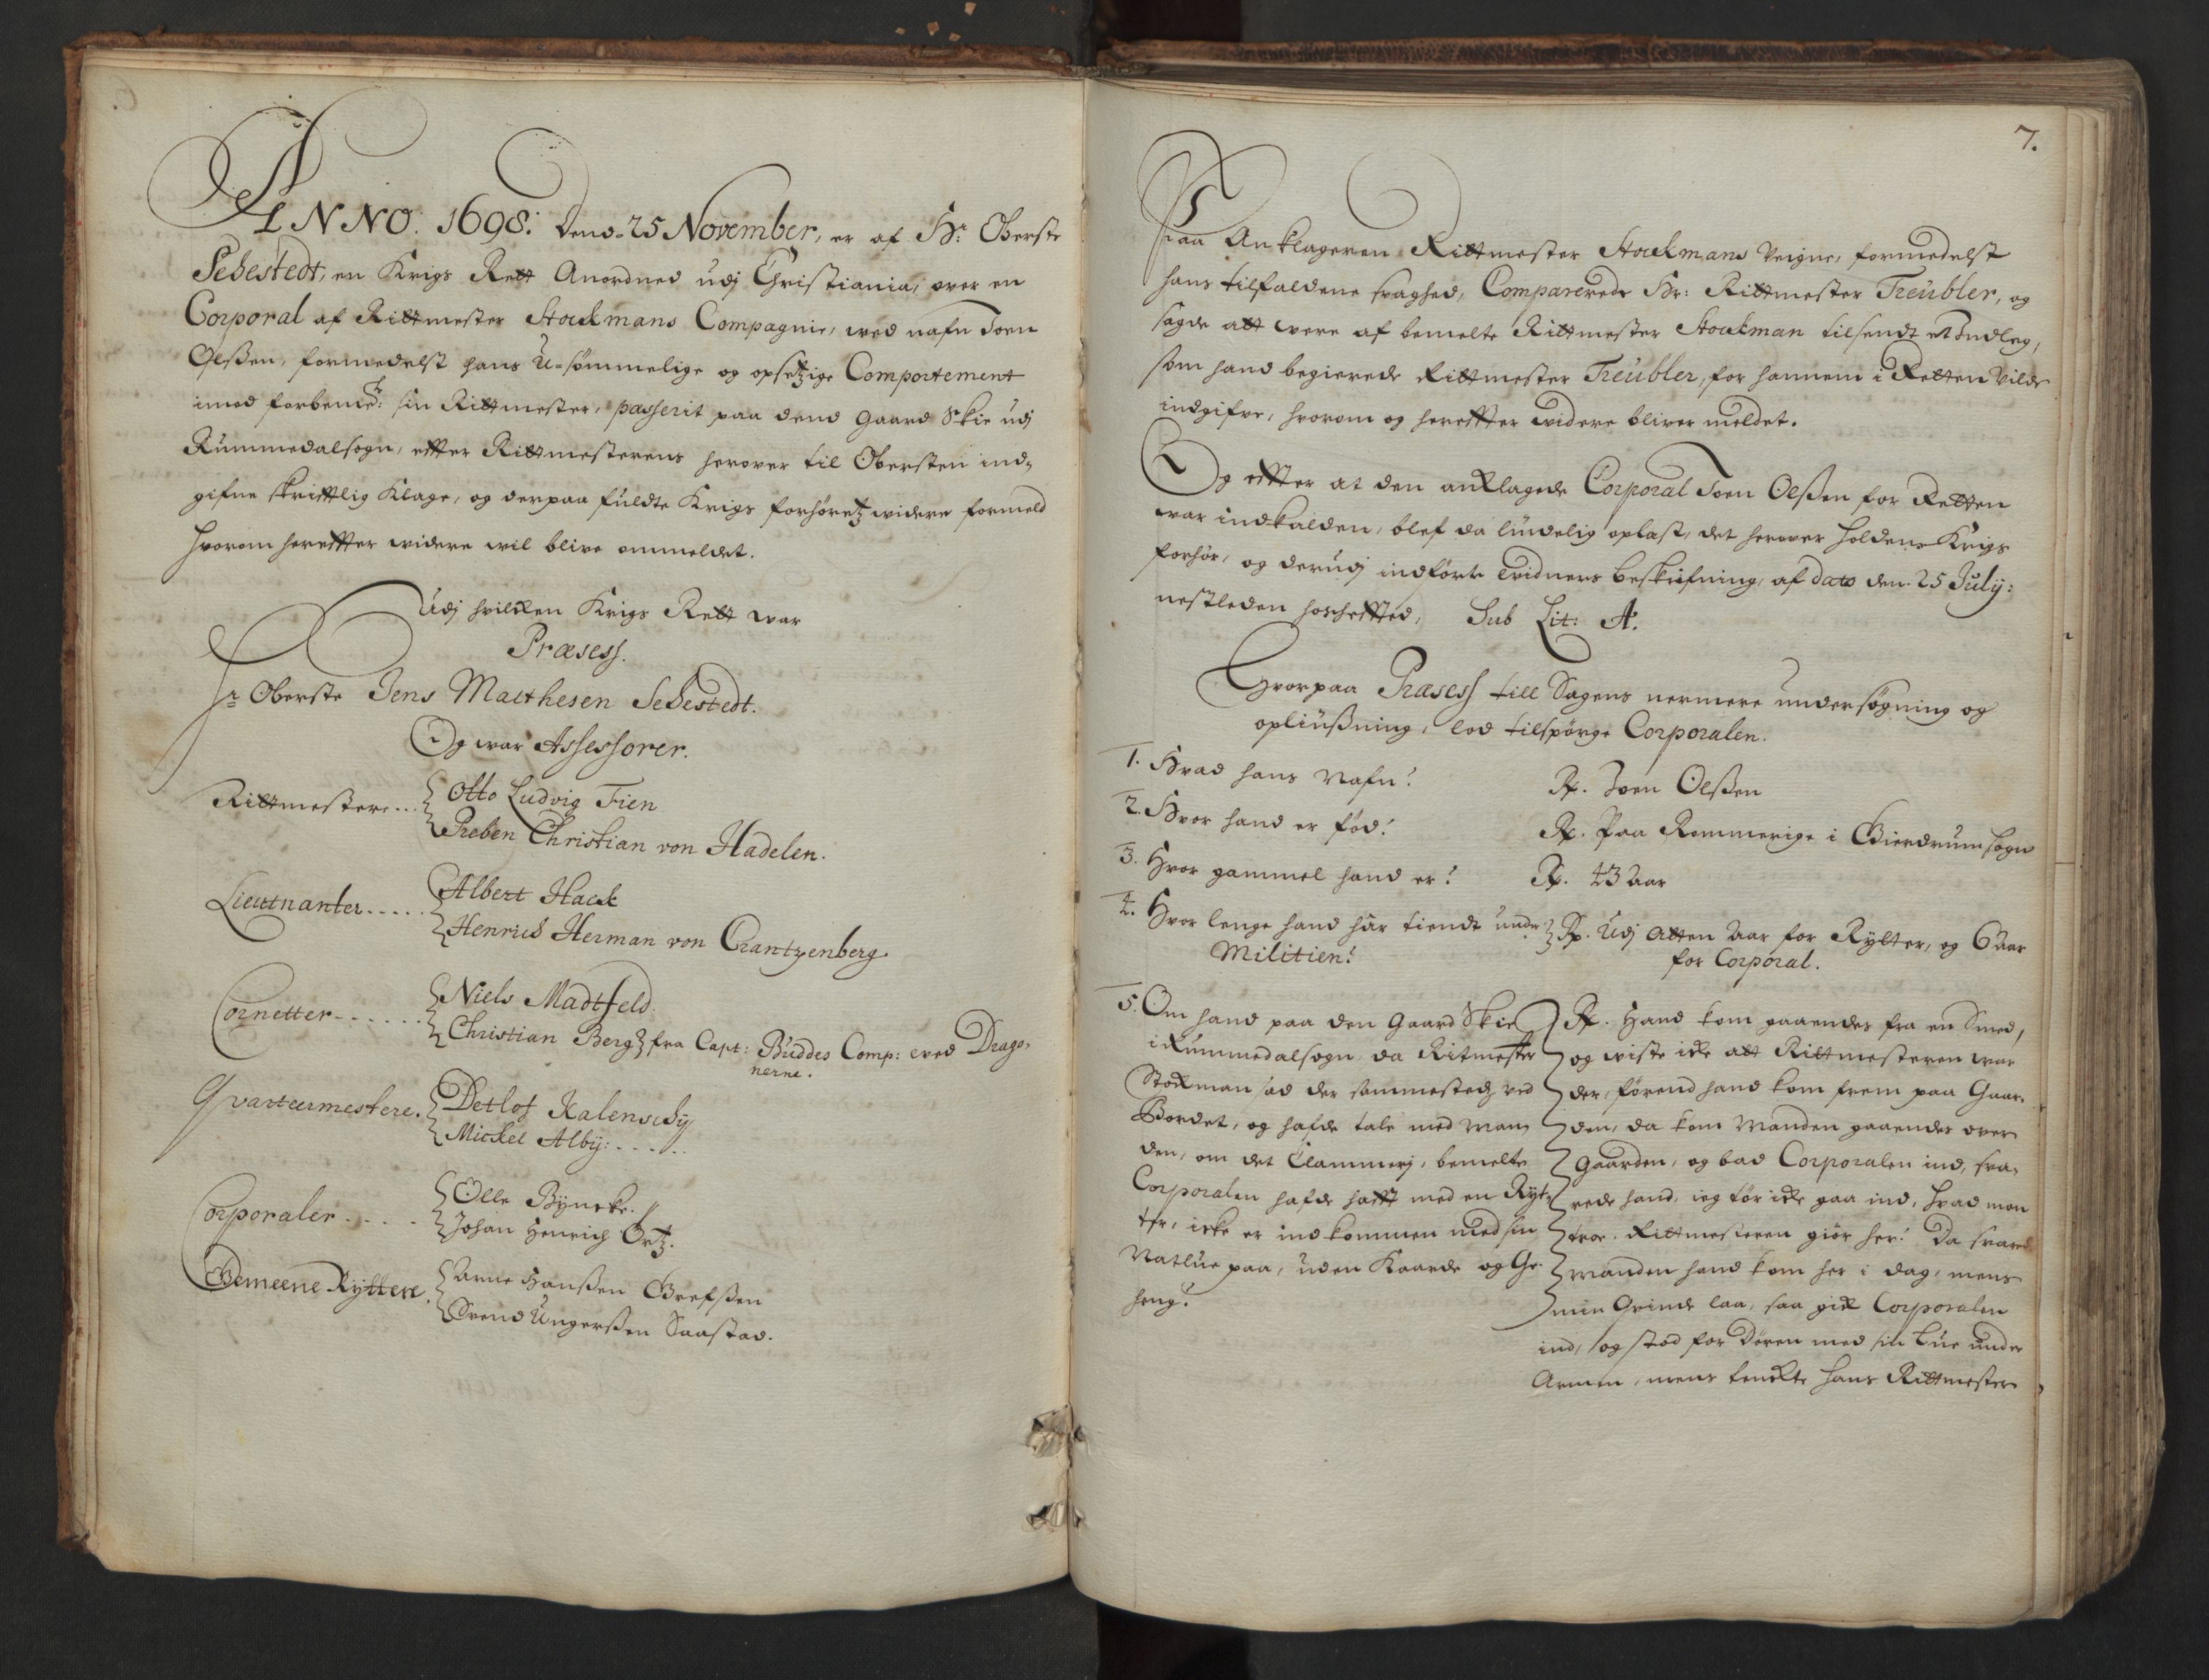 ANNO. 1698: Dend. 25 November, er af Hr: Oberste
Sehestedt, en Krigs Rett Anordned udj Christiania, over en
Corporal af Rittmester Stockmans Compagnie, wed nafn Joen
Olßen, formedelst hans U-sømmelige og opsetzige Comportement
imod forbemte: sin Rittmester, passerit paa dend Gaard Skie udj
Rummedalsogn, efter Rittmesterens herover til Obersten ind-
gifne skrifftlig Klage, og derpaa fuldte Krigs forhøretz widere formeld
hvorom hereffter widere wil blive ommeldet.
Udj hvilcken Krigs Rett war
Præsess.
Hr Oberste Jens Matthesen Sehestedt.
Og war Assessorer.
Rittmestere... Otto Ludvig Fien
Preben Christian von Hadelen.
Lieutnanter..... Albert Hack
Henrich Herman von Crantzenberg
Cornetter...... Niels Madtfeld
Christian Berg fra Capt: Buddes Comp: wed Drago-
nerne.
Qvarteermestere. Detlof Kalenschy
Mickel Alby:.....
Corporaler.... Olle Byncke.
Johan Henrich Ortz.
Gemeene Ryttere. Arne Hanßen Grefßen
Svend Ungerßen Saastad.
7.
Paa Anklageren Rittmester Stockmans Veigne, formedelst
hans tilfaldene svaghed, Comparerede Hr: Rittmester Treubler, og
sagde att were af bemelte Rittmester Stockman tilsendt et Indleg,
som hand begierede Rittmester Treubler, for hannem i Retten vilde
indgifve, hvorom og hereffter widere bliver meldet.
Og effter at den anklagede Corporal Joen Olßen for Retten
war indkalden, blef da liudelig oplast, det herover holdene Krigs
forhør, og derudj indførte Widners beskrifning, af dato den. 25 July:
nestleden hosheffted, Sub Lit: A.
Hvorpaa Præsess till Sagens nermere undersøgning og
opliußning, lod tilspørge Corporalen.
1. Hvad hans Nafn? Rx. Joen Olßen
2. Hvor hand er fød? Rx. Paa Rommerige i Gierdrum sogn
3. Hvor gammel hand er? Rx. 43 Aar
4. Hvor lenge hand har tiendt under Rx. Udj Atten Aar for Rytter, og 6 Aar
Militien? for Corporal.
5. Om hand paa den Gaard Skie
i Rummedalsogn, da Ritmester
Stockman sad der sammestedz ved
Bordet, og hafde tale med Man-
den, om det Clammerj, bemelte
Corporalen hafde hafft med en Ryt-
ter, icke er indkommen med sin
Natlue paa, uden Kaarde og Ge-
heng?
Rx. Hand kom gaaendes fra en Smed,
og wiste icke att Rittmesteren war
der, førend hand kom frem paa Gaar-
den, da kom Manden gaaendes over
Gaarden, og bad Corporalen ind, sva-
rede hand, ieg tør icke gaa ind, hvad mon
troe. Rittmesteren giør her? Da svared
Manden hand kom her i dag, mens
min Qvinde laa, saa gick Corporalen
ind, og stod for Døren med sin Lue under
Armen, mens tenckte hans Rittmester